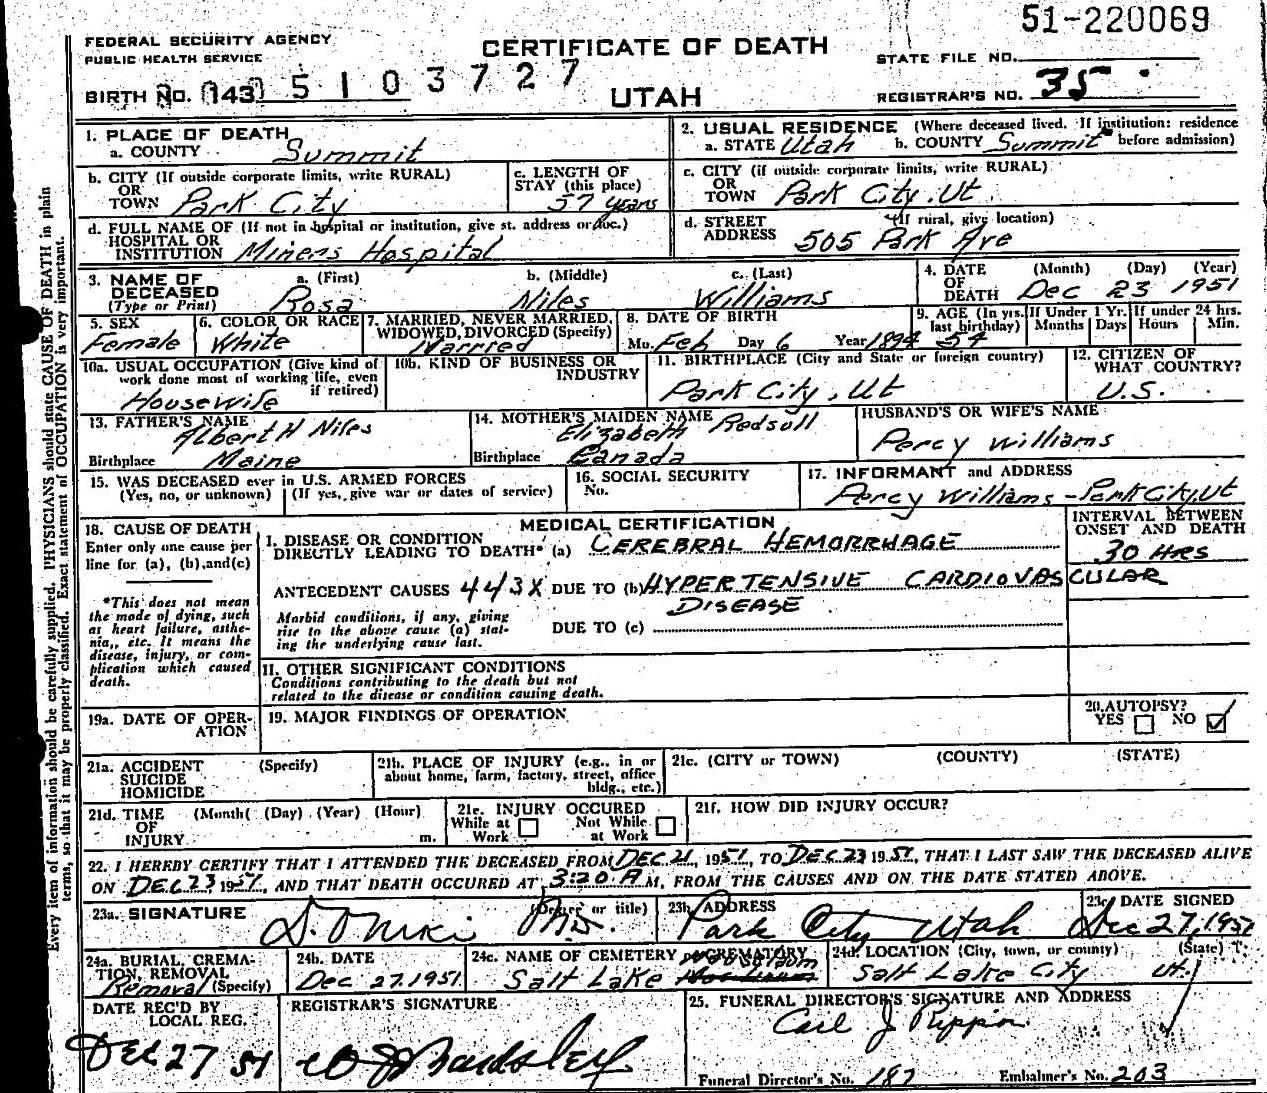 51-220069
FEDERAL SECURITY AGENCY
PUBLIC HEALTH SERVICE
CERTIFICATE OF DEATH
STATE FILE NO.
BIRTH NO. 143 5103727
UTAH
REGISTRAR'S NO. 35
1. PLACE OF DEATH
a. COUNTY Summit
2. USUAL RESIDENCE (Where deceased lived. If institution: residence before admission)
a. STATE Utah b. COUNTY Summit
b. CITY (If outside corporate limits, write RURAL)
OR TOWN Park City
c. LENGTH OF STAY (this place) 57 years
c. CITY (if outside corporate limits, write RURAL)
OR TOWN Park City, Ut
d. FULL NAME OF (If not in hospital or institution, give st. address or loc.)
HOSPITAL OR INSTITUTION Miners Hospital
d. STREET ADDRESS (If rural, give location)
505 Park Ave
3. NAME OF DECEASED (Type or Print)
a. (First) b. (Middle) c. (Last)
Rosa Niles Williams
4. DATE OF DEATH (Month) (Day) (Year)
Dec 23 1951
5. SEX Female
6. COLOR OR RACE White
7. MARRIED, NEVER MARRIED, WIDOWED, DIVORCED (Specify) Married
8. DATE OF BIRTH
Mo. Feb Day 6 Year 1894
9. AGE (In yrs. last birthday) 57
If Under 1 Yr. Months Days
If under 24 hrs. Hours Min.
10a. USUAL OCCUPATION (Give kind of work done most of working life, even if retired)
Housewife
10b. KIND OF BUSINESS OR INDUSTRY
11. BIRTHPLACE (City and State or foreign country)
Park City, Ut
12. CITIZEN OF WHAT COUNTRY?
U.S.
13. FATHER'S NAME
Albert H Niles
Birthplace Maine
14. MOTHER'S MAIDEN NAME
Elizabeth Redsull
Birthplace Canada
HUSBAND'S OR WIFE'S NAME
Percy Williams
15. WAS DECEASED ever in U.S. ARMED FORCES
(Yes, no, or unknown) (If yes, give war or dates of service)
16. SOCIAL SECURITY
No.
17. INFORMANT and ADDRESS
Percy Williams - Park City, Ut
18. CAUSE OF DEATH
Enter only one cause per line for (a), (b), and (c)
*This does not mean the mode of dying, such as heart failure, asthenia, etc. It means the disease, injury, or complication which caused death.
MEDICAL CERTIFICATION
INTERVAL BETWEEN ONSET AND DEATH
I. DISEASE OR CONDITION DIRECTLY LEADING TO DEATH* (a) CEREBRAL HEMORRHAGE
30 HRS
ANTECEDENT CAUSES 443X DUE TO (b) HYPERTENSIVE CARDIOVASCULAR DISEASE
Morbid conditions, if any, giving rise to the above cause (a) stating the underlying cause last.
DUE TO (c)
II. OTHER SIGNIFICANT CONDITIONS
Conditions contributing to the death but not related to the disease or condition causing death.
19a. DATE OF OPERATION
19. MAJOR FINDINGS OF OPERATION
20. AUTOPSY?
YES NO
21a. ACCIDENT SUICIDE HOMICIDE (Specify)
21b. PLACE OF INJURY (e.g., in or about home, farm, factory, street, office bldg., etc.)
21c. (CITY or TOWN) (COUNTY) (STATE)
21d. TIME OF INJURY (Month( (Day) (Year) (Hour) m.
21e. INJURY OCCURED
While at Work Not While at Work
21f. HOW DID INJURY OCCUR?
22. I HEREBY CERTIFY THAT I ATTENDED THE DECEASED FROM DEC 21, 1951, TO DEC 23 1951, THAT I LAST SAW THE DECEASED ALIVE
ON DEC 23 1951, AND THAT DEATH OCCURED AT 3:20 A M, FROM THE CAUSES AND ON THE DATE STATED ABOVE.
23a. SIGNATURE (Degree or title)
23b. ADDRESS
Park City Utah
23c. DATE SIGNED
Dec 27, 1951
24a. BURIAL, CREMATION, REMOVAL (Specify)
Removal
24b. DATE
Dec 27, 1951
24c. NAME OF CEMETERY or CREMATORY
Salt Lake
24d. LOCATION (City, town, or county) (State)
Salt Lake City Ut.
DATE REC'D BY LOCAL REG.
Dec 27 51
REGISTRAR'S SIGNATURE
25. FUNERAL DIRECTOR'S SIGNATURE AND ADDRESS
Carl J
Funeral Director's No. 187 Embalmer's No. 203
Every item of information should be carefully supplied. PHYSICIANS should state CAUSE OF DEATH in plain
terms, so that it may be properly classified. Exact statement of OCCUPATION is very important.